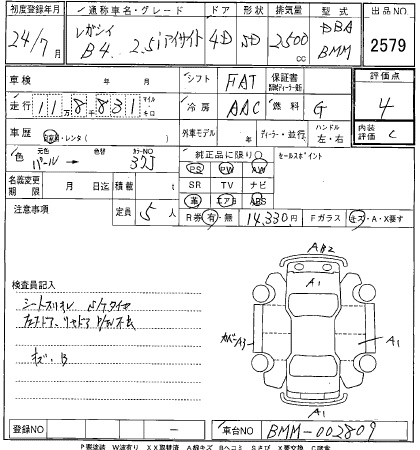 初度登録年月 通称車名・グレード ドア 形状 排気量 型式 出品NO
24/7月 レガシィ B4 2.5iアイサイト 4D SD 2500cc DBA BMM 2579
車検 年 月 シフト FAT 保証書 評価点
走行 11万8831 マイル キロ 冷房 AAC 燃料 G 4
車歴 自家用・レンタ( ) 外車モデル ディーラー・並行 ハンドル 左・右 内装評価 C
色 元色 パール→ 色替 カラーNO 37J 純正品に限り○ セールスポイント
PS PW AW
名義変更期限 月 日迄 積載 t SR TV ナビ
革 エアB ABS
注意事項 定員 5人 R券 有・無 14,330円 Fガラス キズ・A・X要す
検査員記入
キズ・B
A B2
A1
カバーA3
A1
A1
登録NO 車台NO BMM-002809
P要塗装 W波有り XX取替済 A線キズ Bヘコミ Sさび X要交換 C腐食